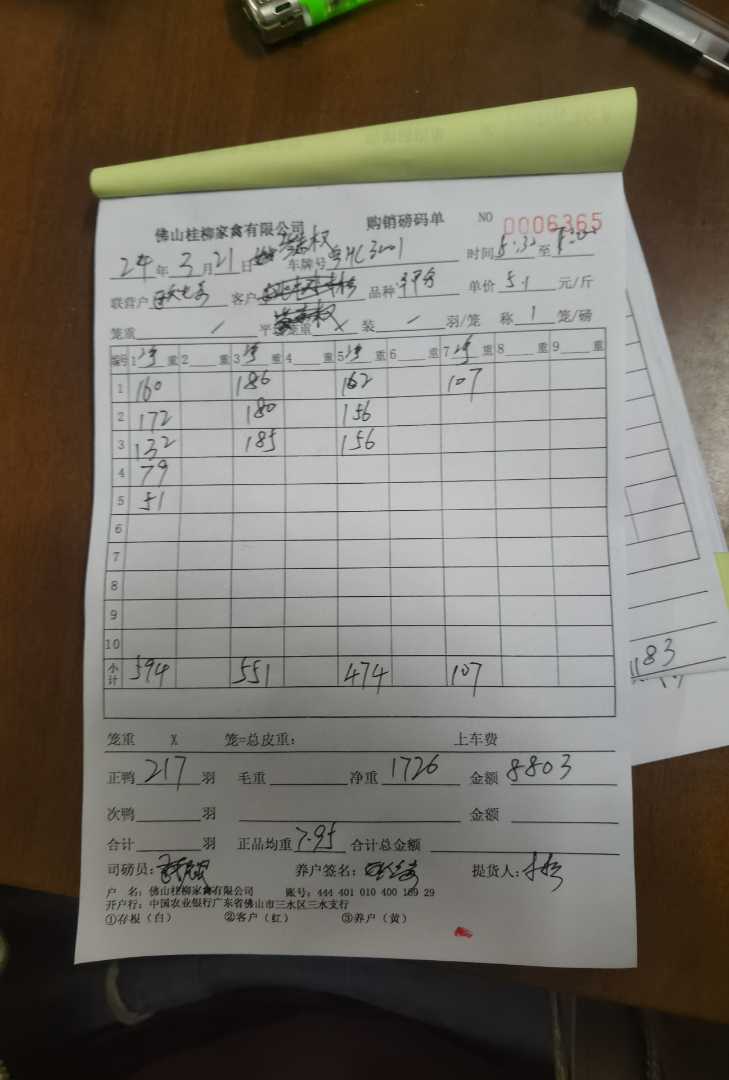 佛山桂柳家禽有限公司 购销磅码单 NO 0006365
24年3月21日 车牌号 粤HC3001 时间 5:30 至
联营户 客户 品种 单价 5.1 元/斤
笼重 / 平均笼重 装 / 羽/笼 称 1 笼/磅
编号 1净重 2 重 3净重 4 重 5净重 6 重 7净重 8 重 9 重
1 160 186 162 107
2 172 180 156
3 132 185 156
4 79
5 51
6
7
8
9
10
小计 594 551 474 107
笼重 X 笼=总皮重: 上车费
正鸭 217 羽 毛重 净重 1726 金额 8803
次鸭 羽 金额
合计 羽 正品均重 7.95 合计总金额
司磅员: 养户签名: 提货人:
户 名: 佛山桂柳家禽有限公司 账号: 444 401 010 400 169 29
开户行: 中国农业银行广东省佛山市三水区三水支行
①存根(白) ②客户(红) ③养户(黄)
183